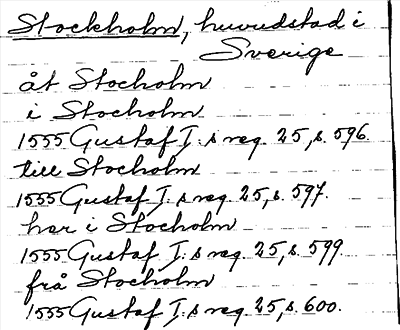 Stockholm, huvudstad i
Sverige
åt Stocholm
i Stocholm
1555 Gustaf I:s reg. 25, s. 596.
till Stocholm
1555 Gustaf I:s reg. 25, s. 597.
har i Stocholm
1555 Gustaf I:s reg. 25, s. 599
frå Stocholm
1555 Gustaf I:s reg. 25, s. 600.